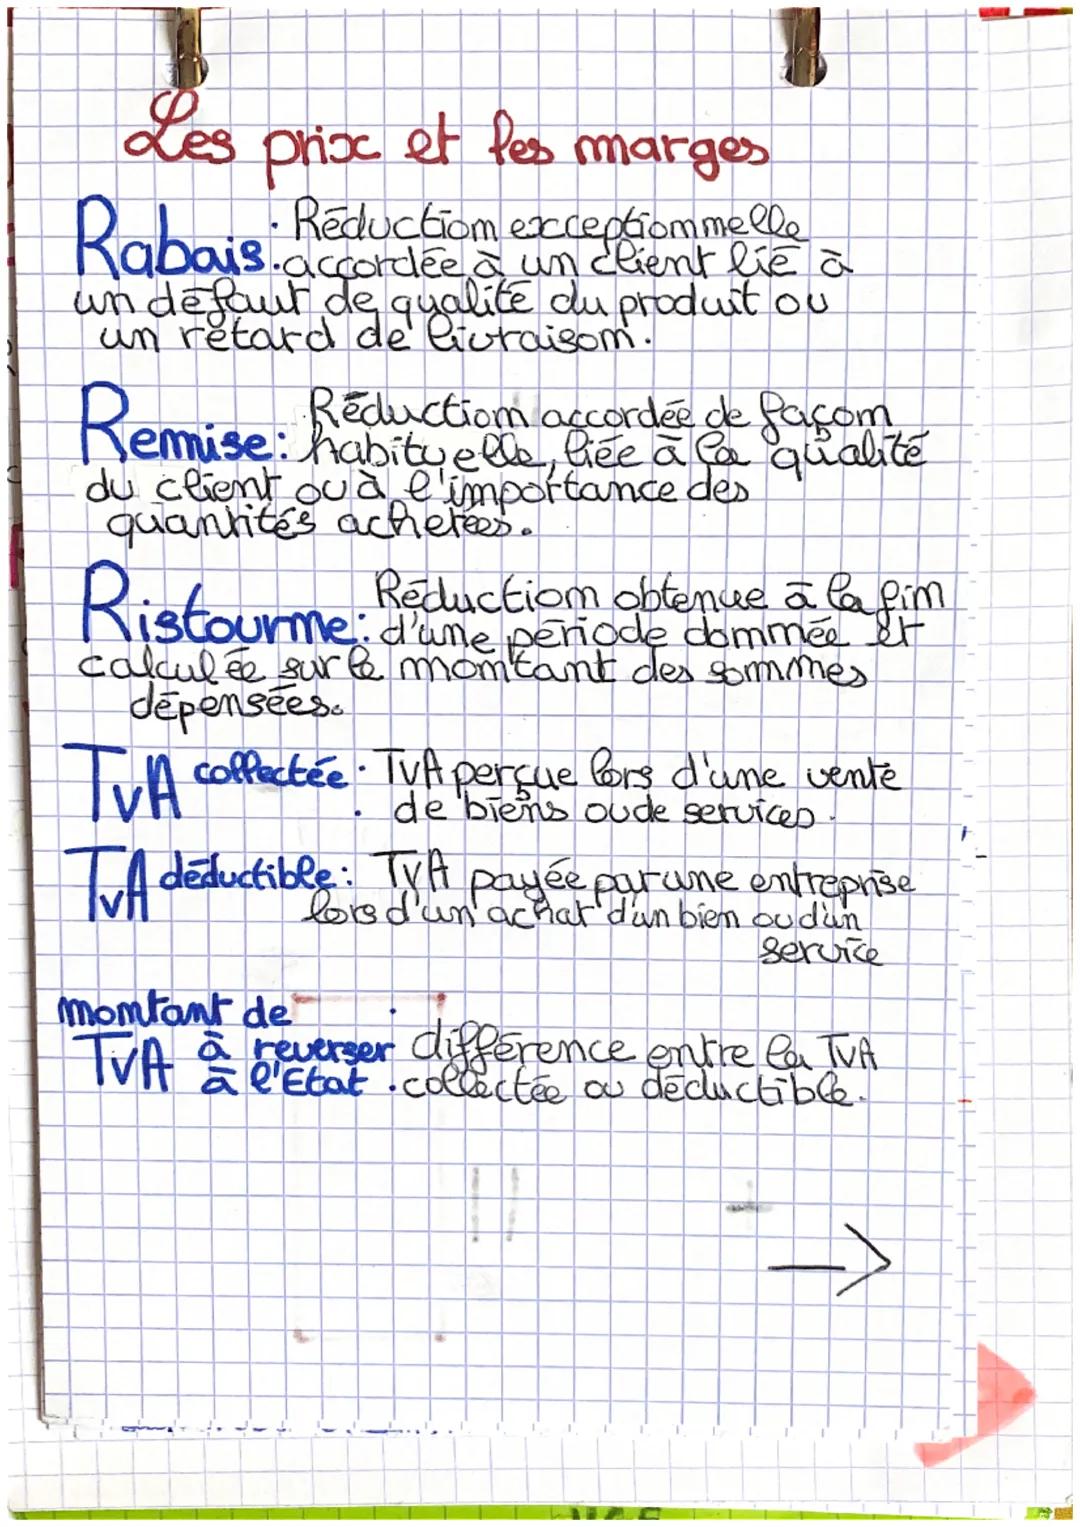 Les prix et les marges
Rabais : Réduction exceptionnelle
accordée à un client lié à
un défaut de qualité du produit ou
un retard de livraison.
Remise : Réduction accordée de façon
habituelle, liée à la qualité
du client ou à l'importance des
quantités achetées.
Ristourne : Réduction obtenue à la fin
d'une période donnée et
calculée sur le montant des sommes
dépensées.
TVA collectée : TVA perçue lors d'une vente
de biens ou de services.
TVA déductible : TVA payée par une entreprise
lors d'un achat d'un bien ou d'un
service
montant de
TVA à reverser différence entre la TVA
à l'Etat : collectée ou déductible.